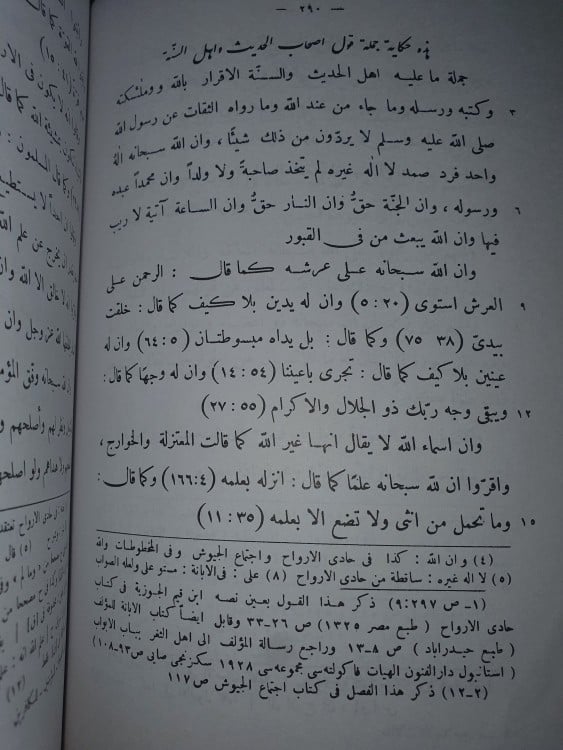 — ٢٩٠ —
هذه حكاية جملة قول اصحاب الحديث واهل السنّة
جملة ما عليه اهل الحديث والسنّة الاقرار بالله وملئكته
٣ وكتبه ورسله وما جاء من عند الله وما رواه الثقات عن رسول الله
صلى الله عليه وسلم لا يردّون من ذلك شيئًا، وان الله سبحانه الهٌ
واحد فرد صمد لا اله غيره لم يتخذ صاحبةً ولا ولدًا وان محمداً عبده
٦ ورسوله، وان الجنّة حقٌّ وان النار حقٌّ وان الساعة آتية لا ريب
فيها وان الله يبعث من فى القبور
وان الله سبحانه على عرشه كما قال : الرحمن على
٩ العرش استوى (٢٠ : ٥) وان له يدين بلا كيف كما قال : خلقت
بيدىّ (٣٨ ٧٥) وكما قال : بل يداه مبسوطتان (٥ : ٦٤) وان له
عينين بلا كيف كما قال : تجرى باعيننا (٥٤ : ١٤) وان له وجهًا كما قال :
١٢ ويبقى وجه ربّك ذو الجلال والاكرام (٥٥ : ٢٧)
وان اسماء الله لا يقال انها غير الله كما قالت المعتزلة والخوارج ،
واقرّوا ان لله سبحانه علمًا كما قال : انزله بعلمه (٤ : ١٦٦) وكما قال :
١٥ وما تحمل من انثى ولا تضع الا بعلمه (٣٥ : ١١)
(٤) وان الله : كذا فى حادى الارواح واجتماع الجيوش وفى المخطوطات والله
(٥) لا اله غيره : ساقطة من حادى الارواح (٨) على : فى الابانة : مستو على ولعله الصواب
(١ـ ص ٢٩٧ : ٩) ذكر هذا القول بعين نصه ابن قيم الجوزية فى كتاب
حادى الارواح ( طبع مصر ١٣٢٥) ص ٢٦-٣٣ وقابل ايضاً كتاب الابانة للمؤلف
( طبع حيدراباد ) ص ٨-١٣ وراجع رسالة المؤلف الى اهل الثغر بباب الابواب
( استانبول دار الفنون الهيات فاكولته سى مجموعه سى ١٩٢٨ سكزنجى صايى ص ٩٣-١٠٨)
(٢-١٢) ذكر هذا الفصل فى كتاب اجتماع الجيوش ص ١١٧